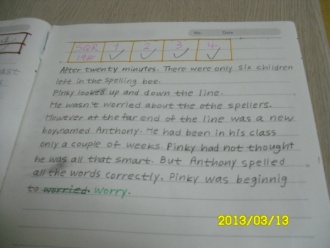 No. Date
SQR 1 2 3 4
After twenty minutes. There were only six children
left in the spelling bee.
Pinky looked up and down the line.
He wasn't worried about the othe spellers.
However at the far end of the line was a new
boy named Anthony. He had been in his class
only a couple of weeks. Pinky had not thought
he was all that smart. But Anthony spelled
all the words correctly. Pinky was beginnig
to worried. worry.
2013/03/13